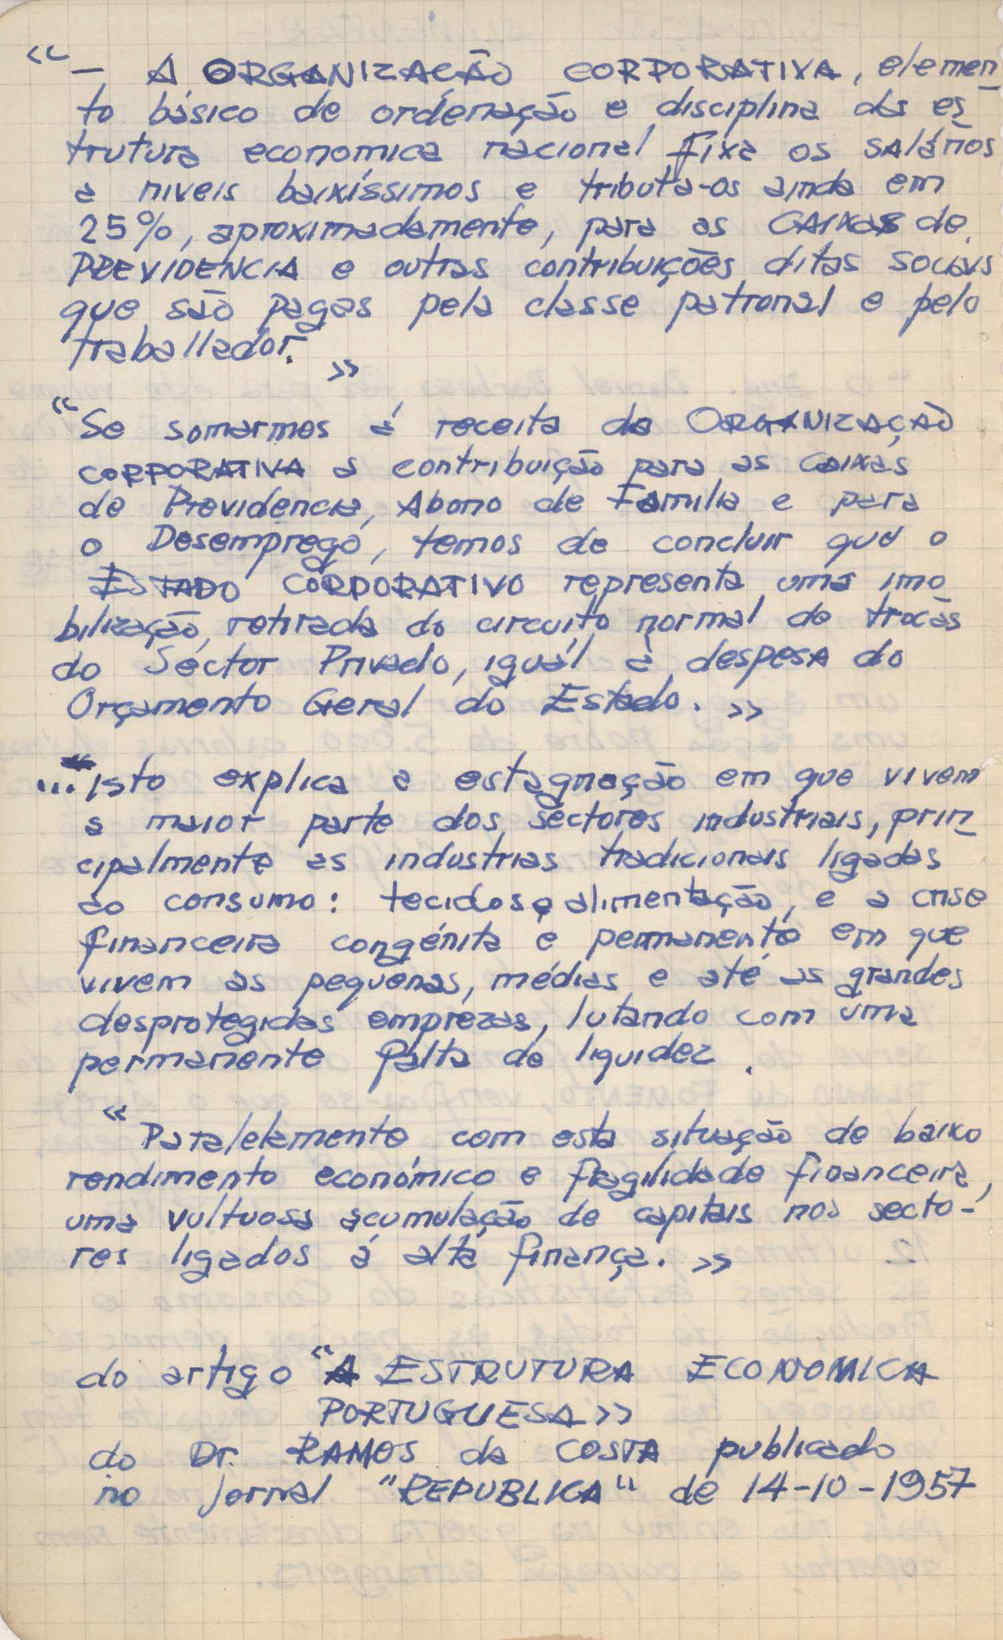 “— A ORGANIZAÇÃO CORPORATIVA, elemen-
to básico de ordenação e disciplina da es-
trutura economica nacional fixa os salários
a niveis baixíssimos e tributa-os ainda em
25%, aproximadamente, para as CAIXAS de
PREVIDENCIA e outras contribuições ditas sociais
que são pagas pela classe patronal e pelo
traballador. »
“Se somarmos á receita da ORGANIZAÇÃO
CORPORATIVA a contribuição para as Caixas
de Previdencia, Abono de Familia e para
o Desemprego, temos de concluir que o
ESTADO CORPORATIVO representa uma imo
bilização, retirada do circuito normal de trocas
do Séctor Privado, iguál à despesa do
Orçamento Geral do Estado. »
...“Isto explica a estagnação em que vivem
a maior parte dos séctores industriais, prin-
cipalmente as industrias tradicionais ligadas
ao consumo: tecidos e alimentação, e a crise
financeira congénita e permanente em que
vivem as pequenas, médias e até as grandes
desprotegidas emprezas, lutando com uma
permanente falta de liquidez.
“Paralelamente com esta situação de baixo
rendimento económico e fragilidade financeira,
uma vultuosa acumulação de capitais nos secto-
res ligados á alta finança. »
do artigo “A ESTRUTURA ECONOMICA
PORTUGUESA»
do Dr. RAMOS da COSTA publicado
no jornal "REPUBLICA" de 14-10-1957